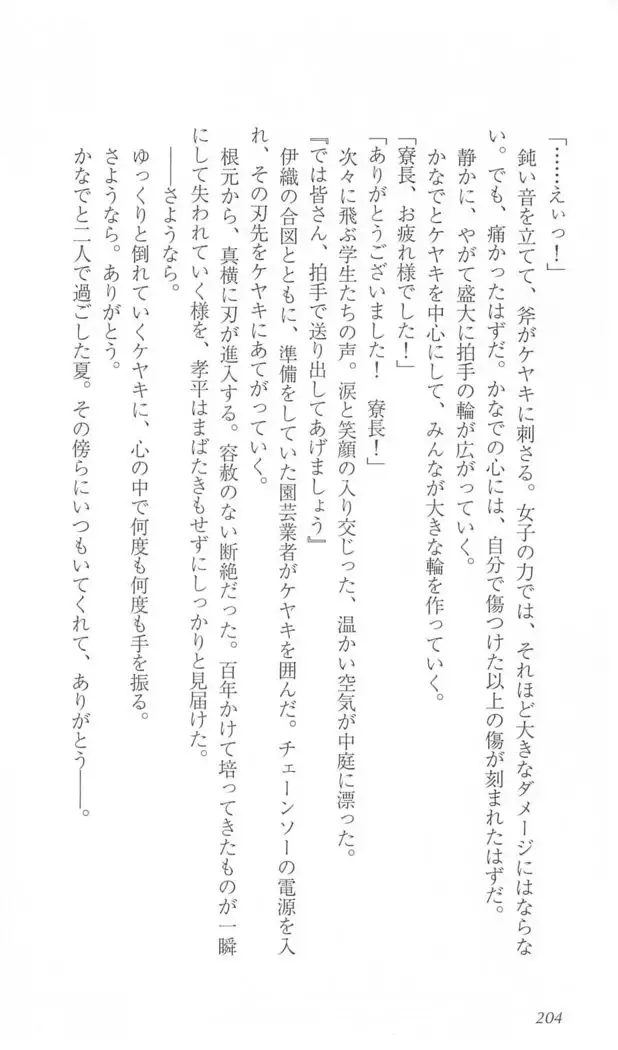 「……えぃっ！」
　鈍い音を立てて、斧がケヤキに刺さる。女子の力では、それほど大きなダメージにはならな
い。でも、痛かったはずだ。かなでの心には、自分で傷つけた以上の傷が刻まれたはずだ。
　静かに、やがて盛大に拍手の輪が広がっていく。
　かなでとケヤキを中心にして、みんなが大きな輪を作っていく。
「寮長、お疲れ様でした！」
「ありがとうございました！　寮長！」
　次々に飛ぶ学生たちの声。涙と笑顔の入り交じった、温かい空気が中庭に漂った。
『では皆さん、拍手で送り出してあげましょう』
　伊織の合図とともに、準備をしていた園芸業者がケヤキを囲んだ。チェーンソーの電源を入
れ、その刃先をケヤキにあてがっていく。
　根元から、真横に刃が進入する。容赦のない断絶だった。百年かけて培ってきたものが一瞬
にして失われていく様を、孝平はまばたきもせずにしっかりと見届けた。
　――さようなら。
　ゆっくりと倒れていくケヤキに、心の中で何度も何度も手を振る。
　さようなら。ありがとう。
　かなでと二人で過ごした夏。その傍らにいつもいてくれて、ありがとう――。
204